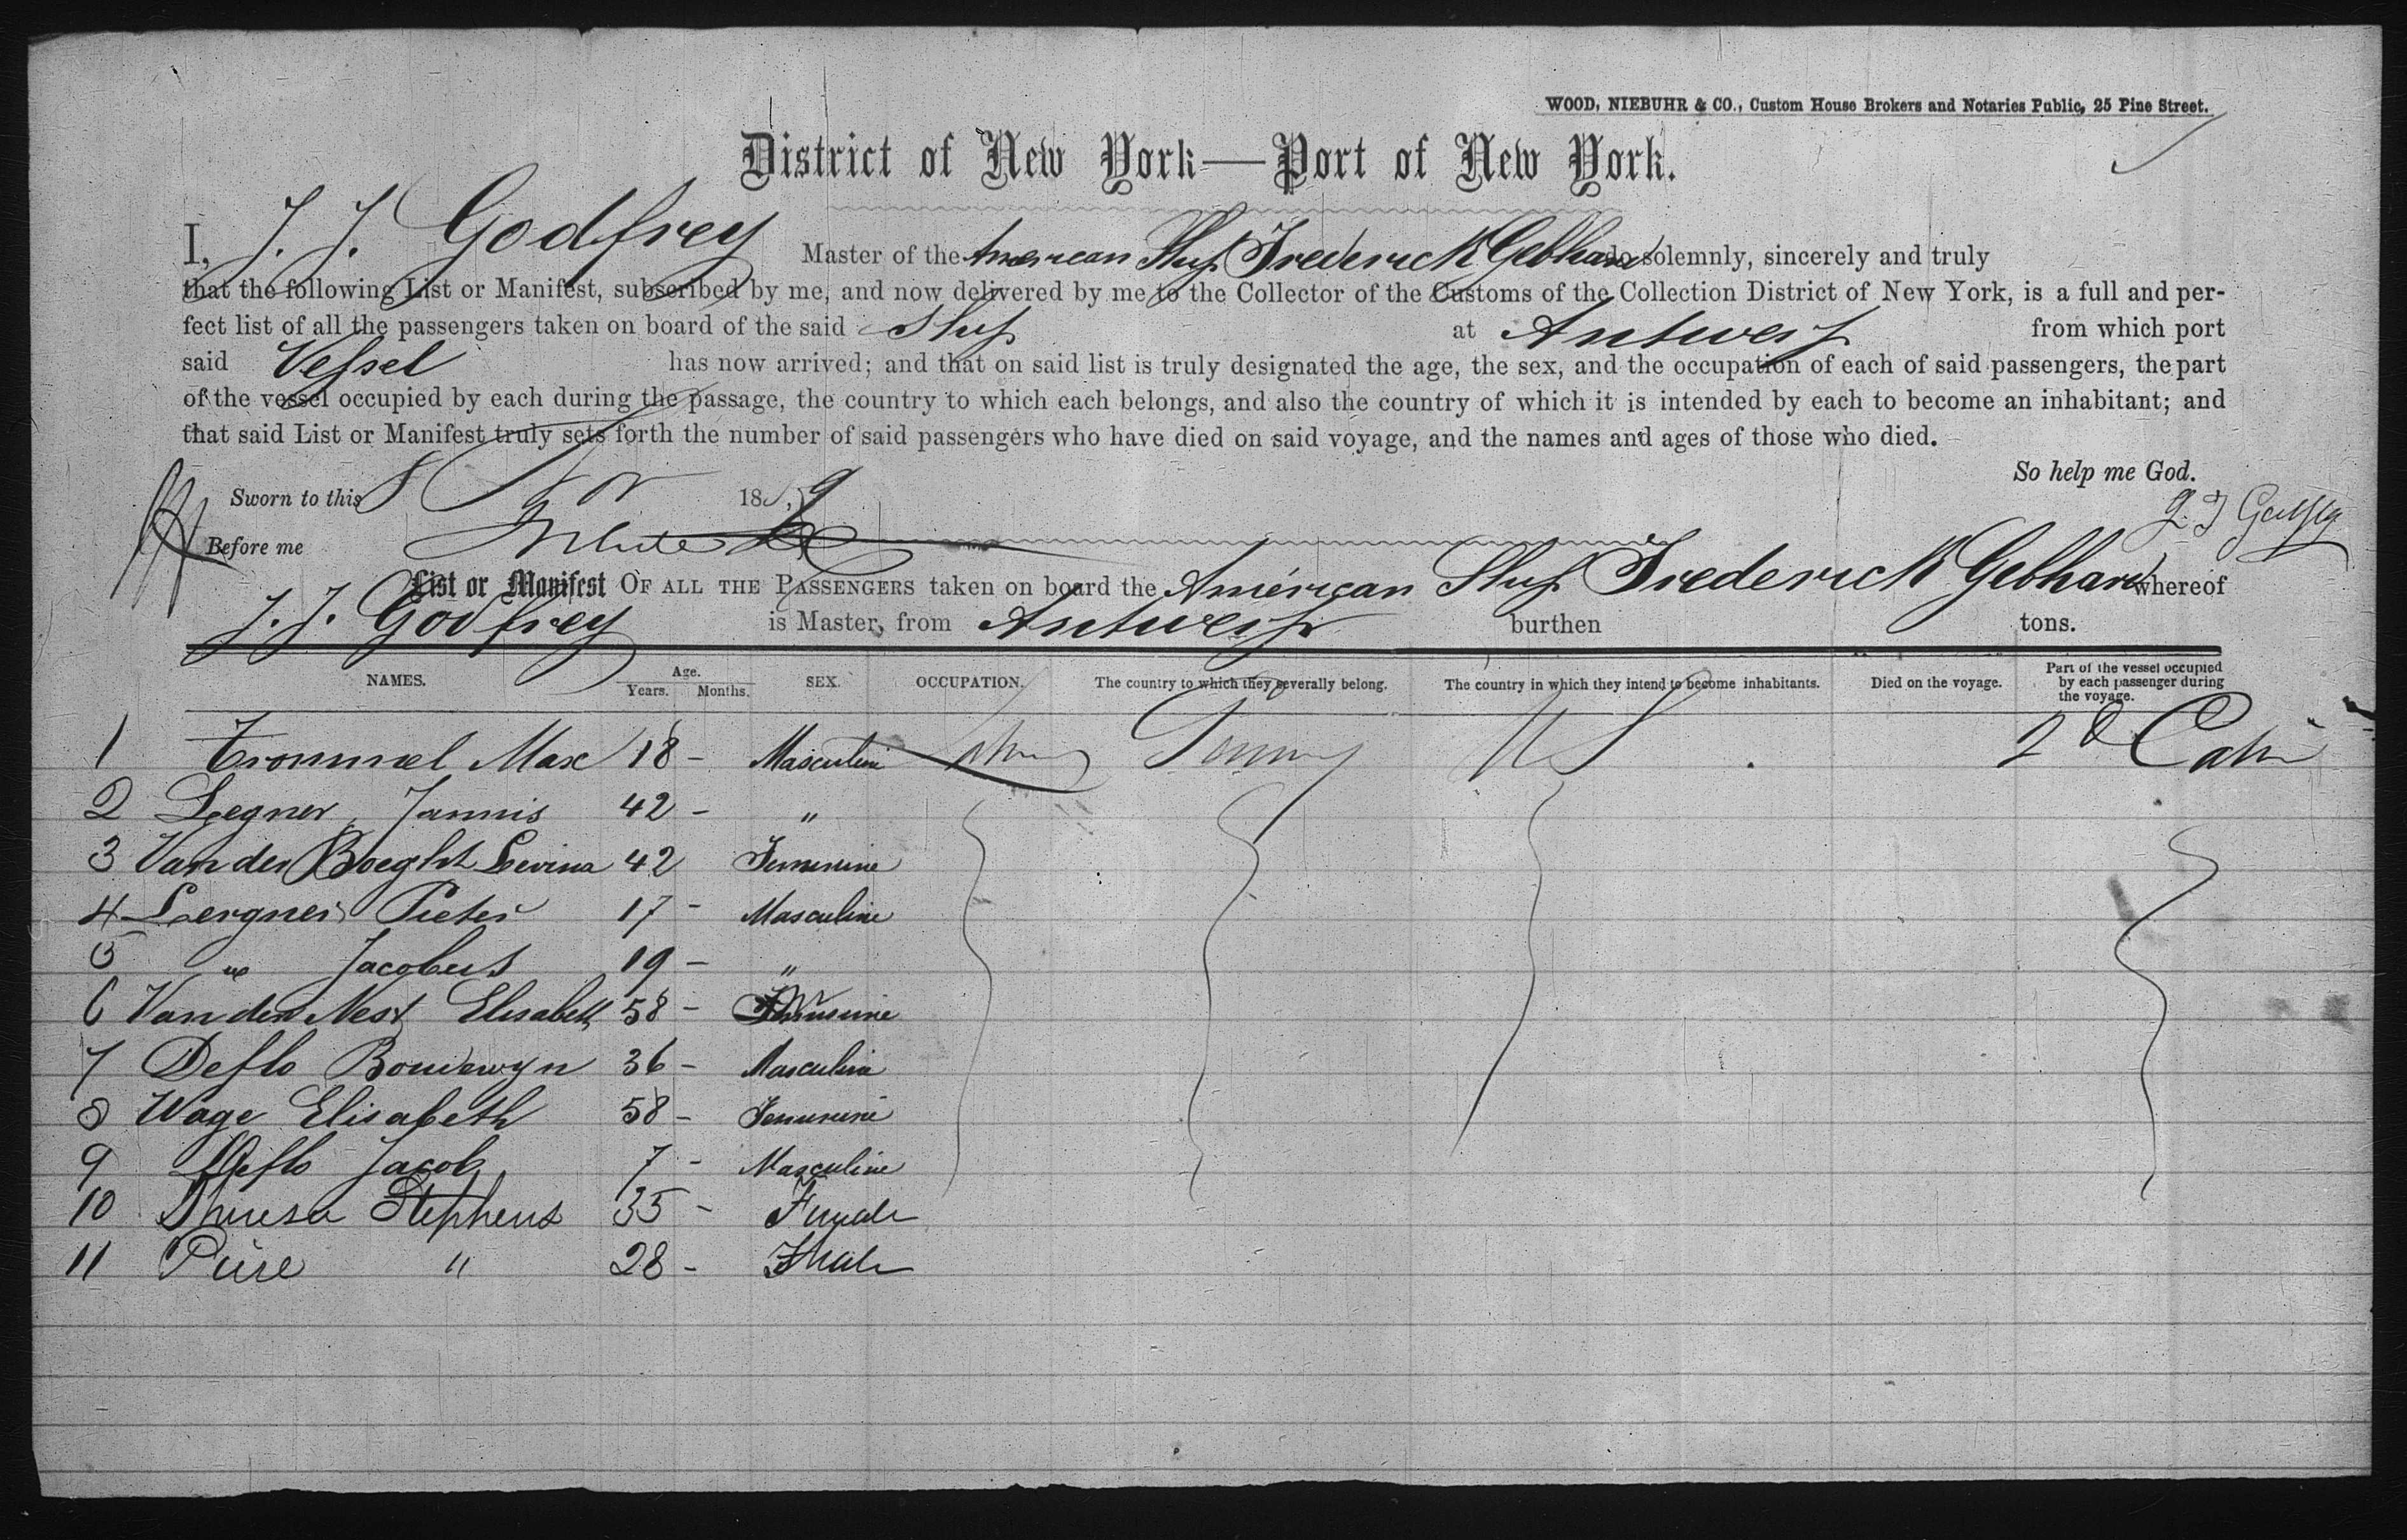 WOOD, NIEBUHR & CO., Custom House Brokers and Notaries Public, 25 Pine Street.
District of New York—Port of New York.
I, J. J. Godfrey Master of the American Ship Frederick Gebhard do solemnly, sincerely and truly
that the following List or Manifest, subscribed by me, and now delivered by me to the Collector of the Customs of the Collection District of New York, is a full and per-
fect list of all the passengers taken on board of the said Ship at Antwerp from which port
said Vessel has now arrived; and that on said list is truly designated the age, the sex, and the occupation of each of said passengers, the part
of the vessel occupied by each during the passage, the country to which each belongs, and also the country of which it is intended by each to become an inhabitant; and
that said List or Manifest truly sets forth the number of said passengers who have died on said voyage, and the names and ages of those who died.
So help me God.
Sworn to this 8 Nov 1859
Before me
List or Manifest OF ALL THE PASSENGERS taken on board the American Ship Frederick Gebhard whereof
J. J. Godfrey is Master, from Antwerp burthen tons.
NAMES. Age. Years. Months. SEX. OCCUPATION. The country to which they severally belong. The country in which they intend to become inhabitants. Died on the voyage. Part of the vessel occupied by each passenger during the voyage.
1 Trommel Max 18 - Masculine Germany US 2d Cabin
2 Legner Jannis 42 - "
3 Van der Boeght Levina 42 Feminine
4 Lergner Pieter 17 - Masculine
5 " Jacobus 19 - "
6 Van der Nest Elisabeth 58 - Feminine
7 Deflo Boudewyn 36 - Masculine
8 Wage Elisabeth 58 - Feminine
9 Deflo Jacob 7 - Masculine
10 Theresa Stephens 35 - Female
11 " 28 -